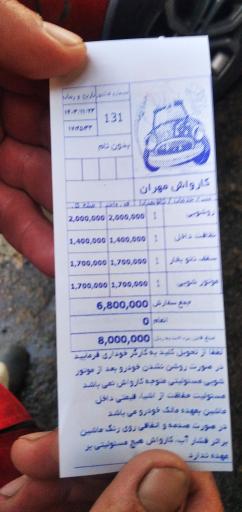 شماره فاکتور تاریخ و زمان
131
۱۴۰۳/۱۱/۲۳
۱۷:۴۵:۴۳
بدون نام
کارواش مهران
روشویی 1 2,000,000 2,000,000
نظافت داخل 1 1,400,000 1,400,000
سقف نانو بخار 1 1,700,000 1,700,000
موتور شویی 1 1,700,000 1,700,000
جمع سفارش 6,800,000
انعام 0
8,000,000
لطفا از تحویل کلید به کارگر خودداری فرمایید
در صورت روشن نشدن خودرو بعد از موتور
شویی مسئولیتی متوجه کارواش نمی باشد
مسئولیت حفاظت از اشیا، قیمتی داخل
ماشین بعهده مالک خودرو می باشد
در صورت صدمه و اتفاقی روی رنگ ماشین
براثر فشار آب، کارواش هیچ مسئولیتی بر
عهده ندارد